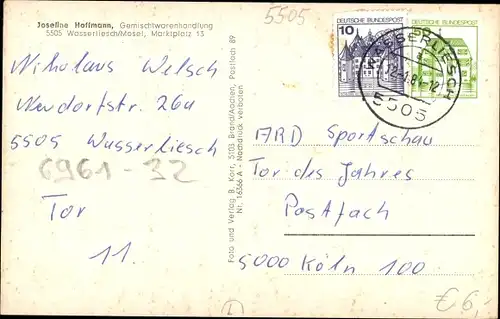 Josefine Hoffmann, Gemischtwarenhandlung
5505 Wasserliesch/Mosel, Marktplatz 13
5505
DEUTSCHE BUNDESPOST
10
DEUTSCHE BUNDESPOST
WASSERLIESCH
5505
Nikolaus Welsch
Neudorfstr. 26a
5505 Wasserliesch
6961-32
Tor
11.
Foto und Verlag B. Korr, 5103 Brand/Aachen, Postfach 89
Nr. 16566 A - Nachdruck verboten
ARD Sportschau
Tor des Jahres
Postfach
5000 Köln 100
€ 6,-